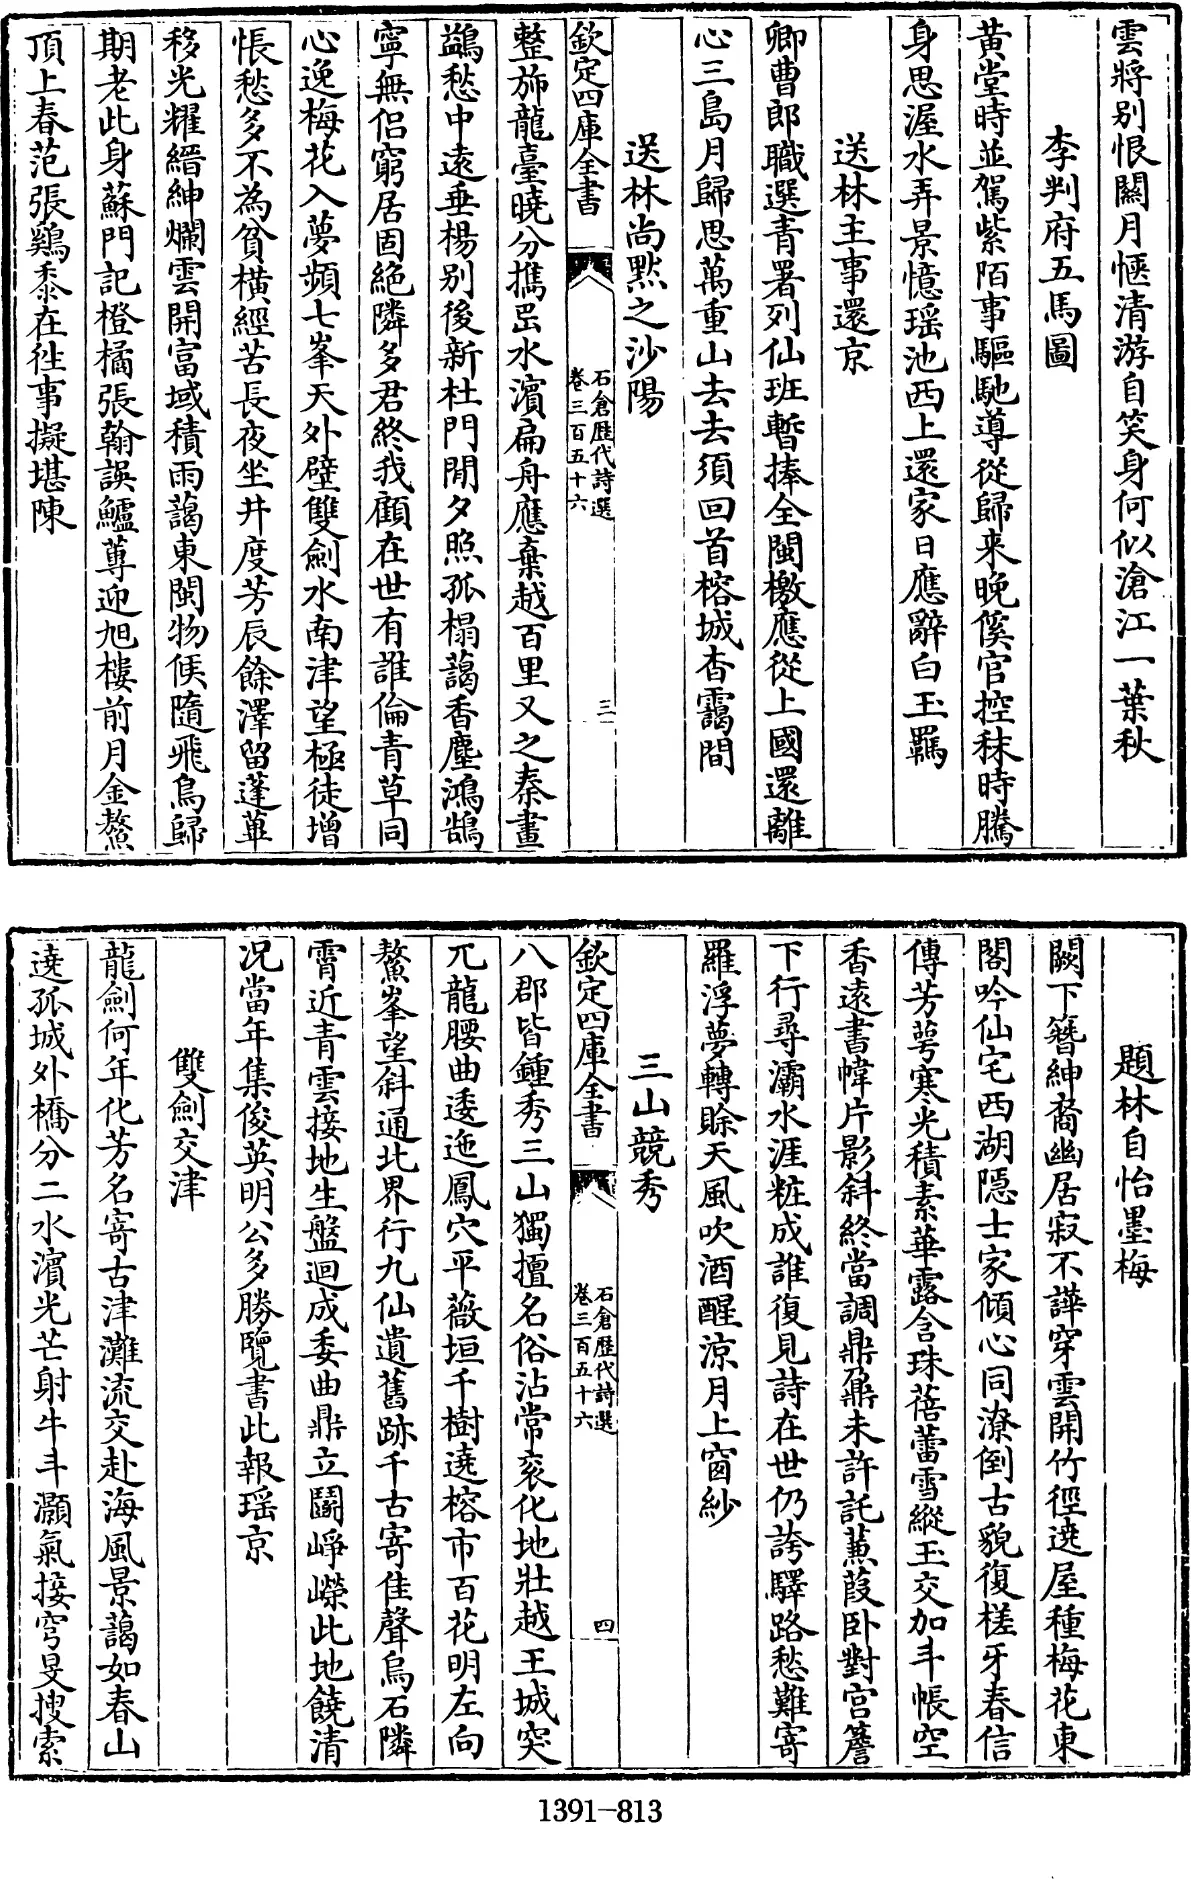 雲將别恨關月愜清游自笑身何似滄江一葉秋
李判府五馬圖
黄堂時並駕紫陌事驅馳導從歸来晚傒官控秣時騰
身思渥水弄景憶瑶池西上還家日應辭白玉羈
送林主事還京
卿曹郎職選青署列仙班暫捧全閩檄應從上國還離
心三島月歸思萬重山去去須回首榕城杳靄間
送林尚黙之沙陽
欽定四庫全書
石倉歷代詩選
卷三百五十六
三
整斾龍臺曉分攜邑水濱扁舟應棄越百里又之秦畫
鷁愁中遠垂楊别後新杜門閒夕照孤榻藹香塵鴻鵠
寧無侣窮居固絶隣多君終我顧在世有誰倫青草同
心逸梅花入夢頻七峯天外壁雙劍水南津望極徒增
悵愁多不為貧横經苦長夜坐井度芳辰餘澤留蓬蓽
移光耀縉紳爛雲開富域積雨藹東閩物候隨飛鳥歸
期老此身蘇門記橙橘張翰誤鱸蓴迎旭樓前月金鰲
頂上春范張鷄黍在往事擬堪陳
題林自怡墨梅
闕下簪紳裔幽居寂不譁穿雲開竹徑遶屋種梅花東
閣吟仙宅西湖隱士家傾心同潦倒古貌復槎牙春信
傳芳萼寒光積素華露含珠蓓蕾雪縱玉交加斗帳空
香遠書幃片影斜終當調鼎鼐未許託蒹葭卧對宫簷
下行尋灞水涯粧成誰復見詩在世仍誇驛路愁難寄
羅浮夢轉賖天風吹酒醒涼月上窗紗
三山競秀
欽定四庫全書
石倉歷代詩選
卷三百五十六
四
八郡皆鍾秀三山獨擅名俗沾常衮化地壯越王城突
兀龍腰曲逶迤鳳穴平薇垣千樹遶榕市百花明左向
鰲峯望斜通北界行九仙遺舊跡千古寄佳聲烏石隣
霄近青雲接地生盤迴成委曲鼎立鬭崢嶸此地饒清
况當年集俊英明公多勝覽書此報瑶京
雙劍交津
龍劍何年化芳名寄古津灘流交赴海風景藹如春山
遶孤城外橋分二水濱光芒射牛斗灝氣接穹旻搜索
1391-813